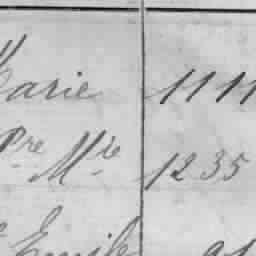 Marie 1111
Pre Mie 1235
Emile